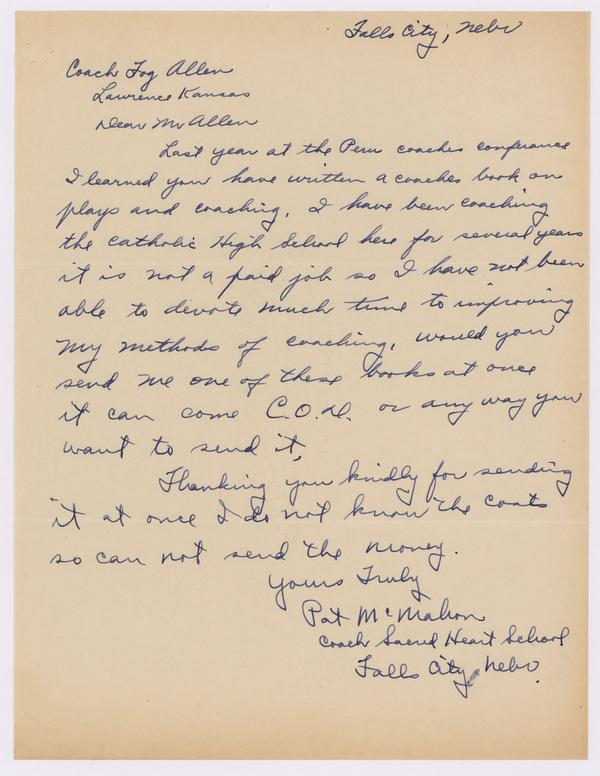 Falls City, Nebr
Coach Fog Allen
Lawrence Kansas
Dear Mr Allen
Last year at the Peru coaches conferance
I learned you have written a coaches book on
plays and coaching, I have been coaching
the catholic High School here for several years
it is not a paid job so I have not been
able to devote much time to improving
my methods of coaching, would you
send me one of these books at once
it can come C.O.D. or any way you
want to send it,
Thanking you kindly for sending
it at once I do not know the costs
so can not send the money.
Yours Truly
Pat McMahon
Coach Sacred Heart School
Falls City, Nebr.